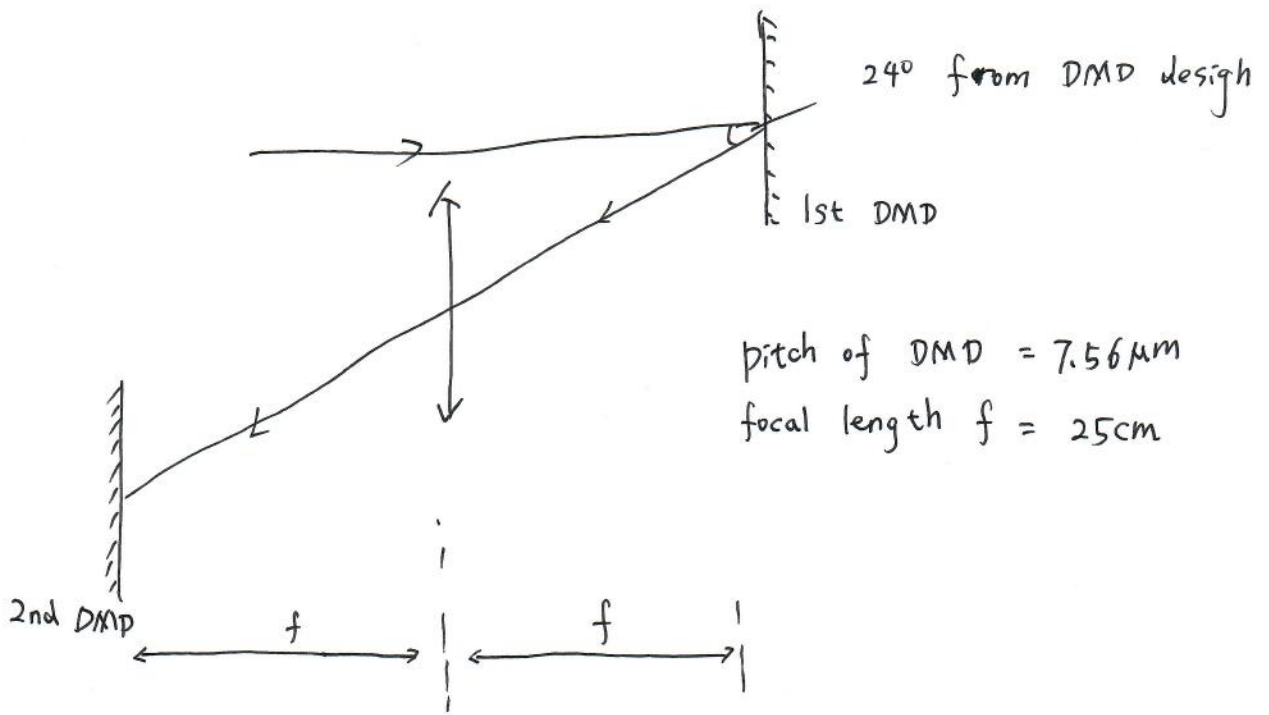 24° from DMD desigh
1st DMD
pitch of DMD = 7.56 μm
focal length f = 25cm
2nd DMD
f
f